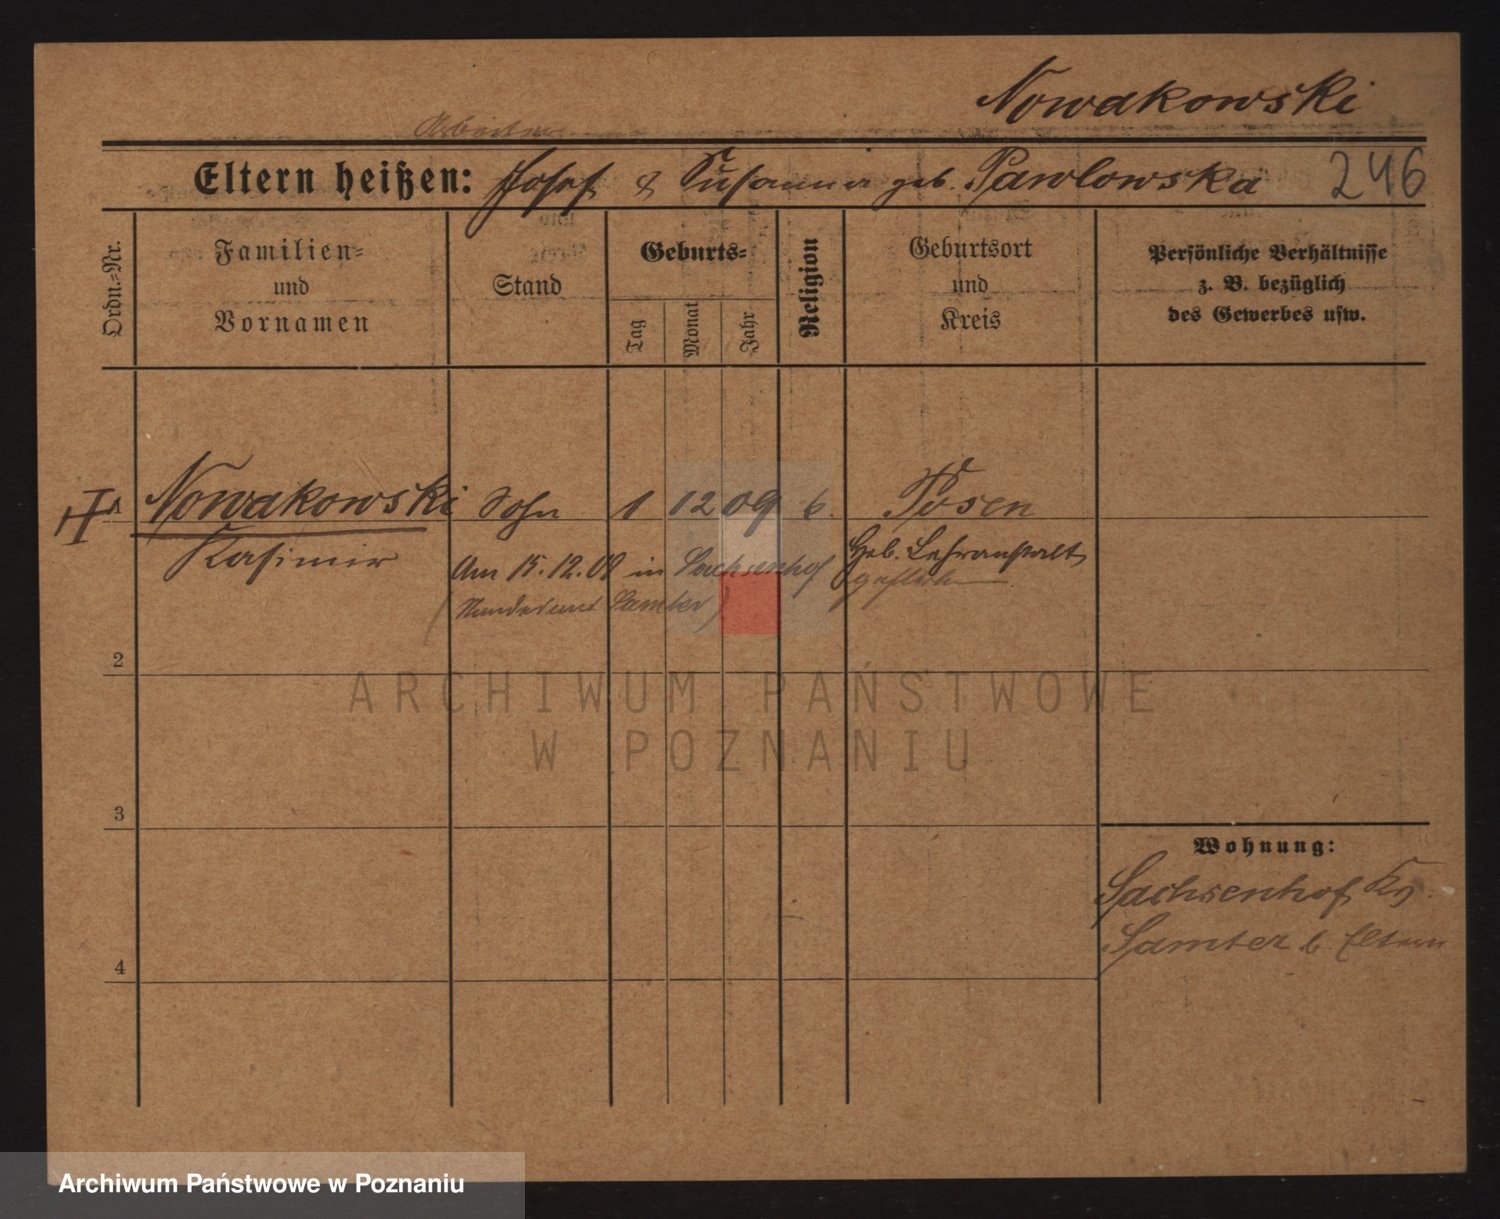 Nowakowski
Arbeiter
Eltern heißen: Josef & Susanna geb. Pawlowska 246
Ordn.-Nr.
Familien- und Vornamen
Stand
Geburts-
Tag
Monat
Jahr
Religion
Geburtsort und Kreis
Persönliche Verhältnisse z. B. bezüglich des Gewerbes usw.
1 Nowakowski Sohn 1 12 09 k. Posen
Kasimir
Am 15.12.09 in Sachsenhof
Samter)
Heb. Lehranstalt
2
3
4
Wohnung:
Sachsenhof Kr.
Samter b. Eltern
ARCHIWUM PAŃSTWOWE
W POZNANIU
Archiwum Państwowe w Poznaniu